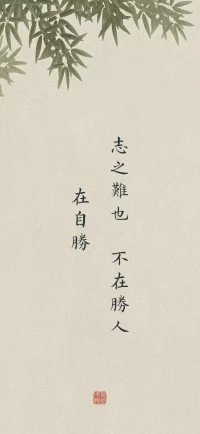 志之難也　不在勝人
在自勝